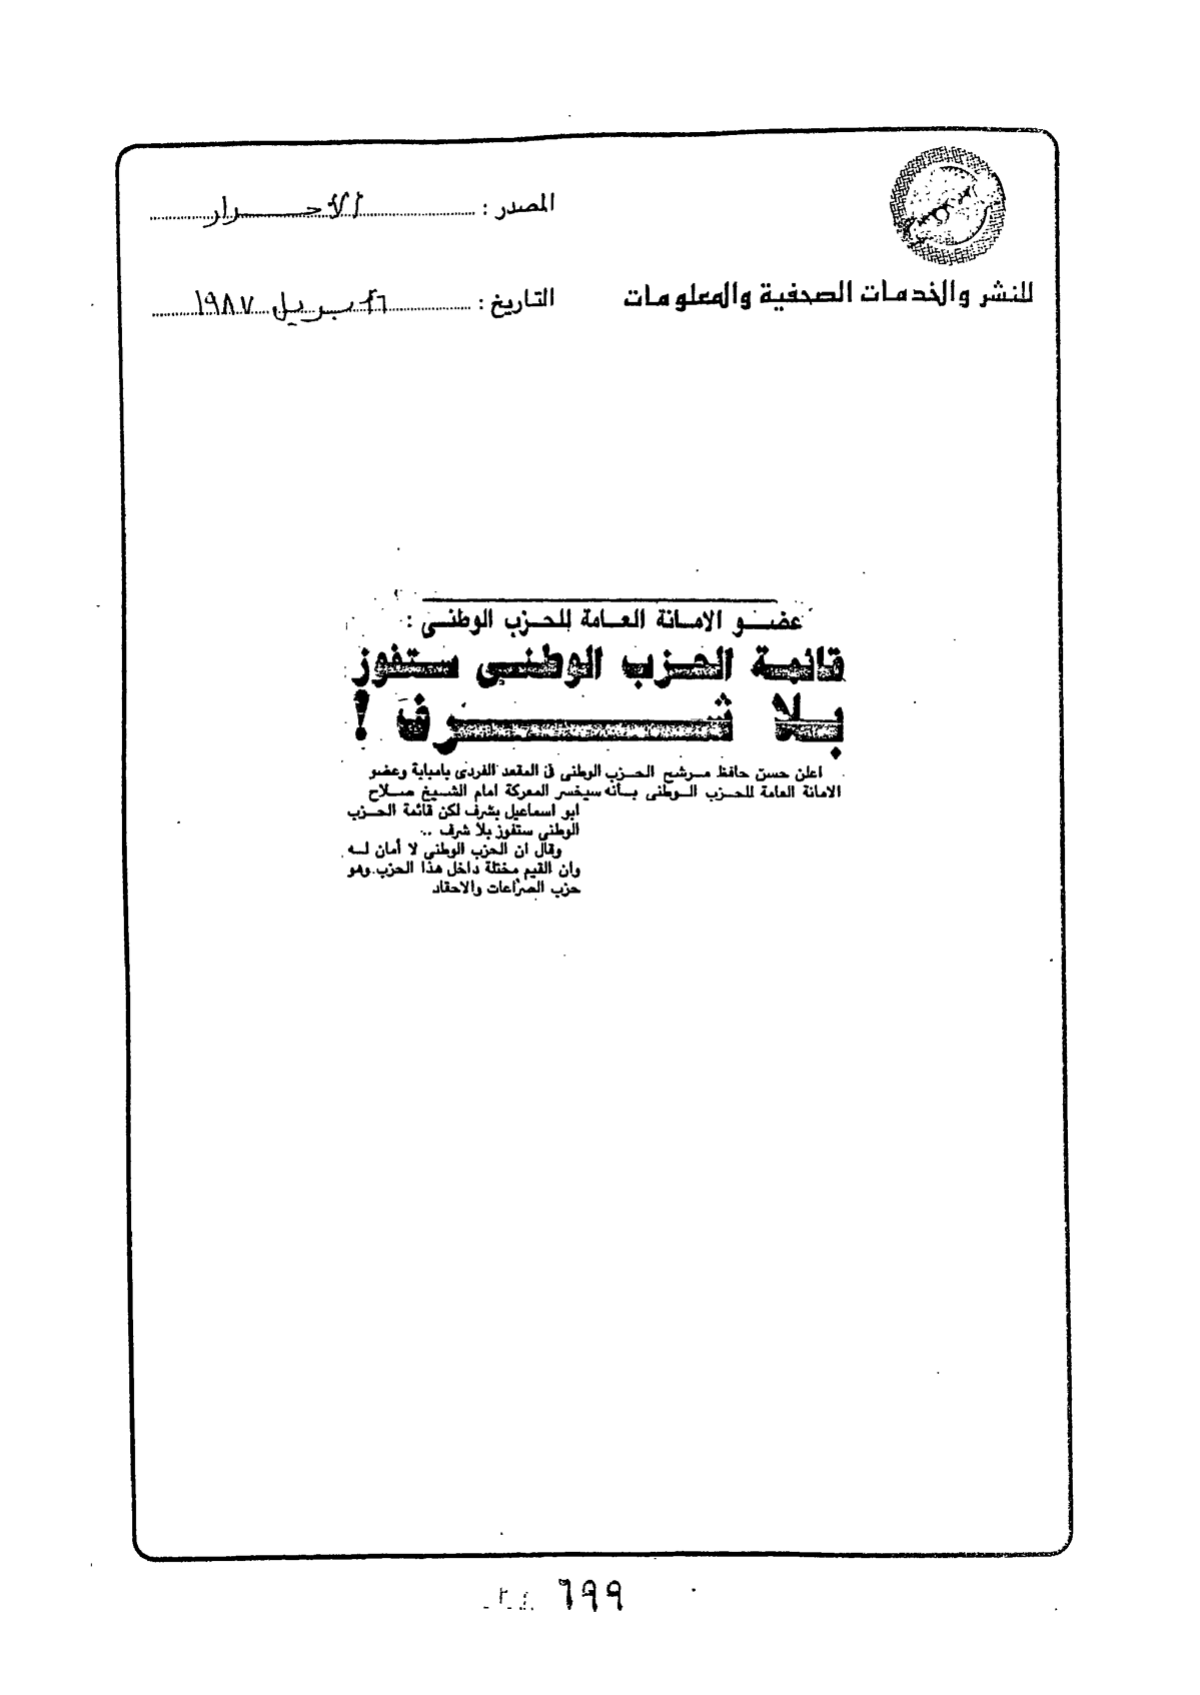 المصدر : الاحرار
للنشر والخدمات الصحفية والمعلومات
التاريخ : ابريل ١٩٨٧
عضو الامانة العامة للحزب الوطنى :
قائمة الحزب الوطنى ستفوز
بلا شرف !
اعلن حسن حافظ مرشح الحزب الوطنى فى المقعد الفردى بامبابة وعضو
الامانة العامة للحزب الوطنى بأنه سيخسر المعركة امام الشيخ صلاح
ابو اسماعيل بشرف لكن قائمة الحزب
الوطنى ستفوز بلا شرف ..
وقال ان الحزب الوطنى لا أمان له
وان القيم مختلة داخل هذا الحزب وهو
حزب الصراعات والاحقاد
٦٩٩